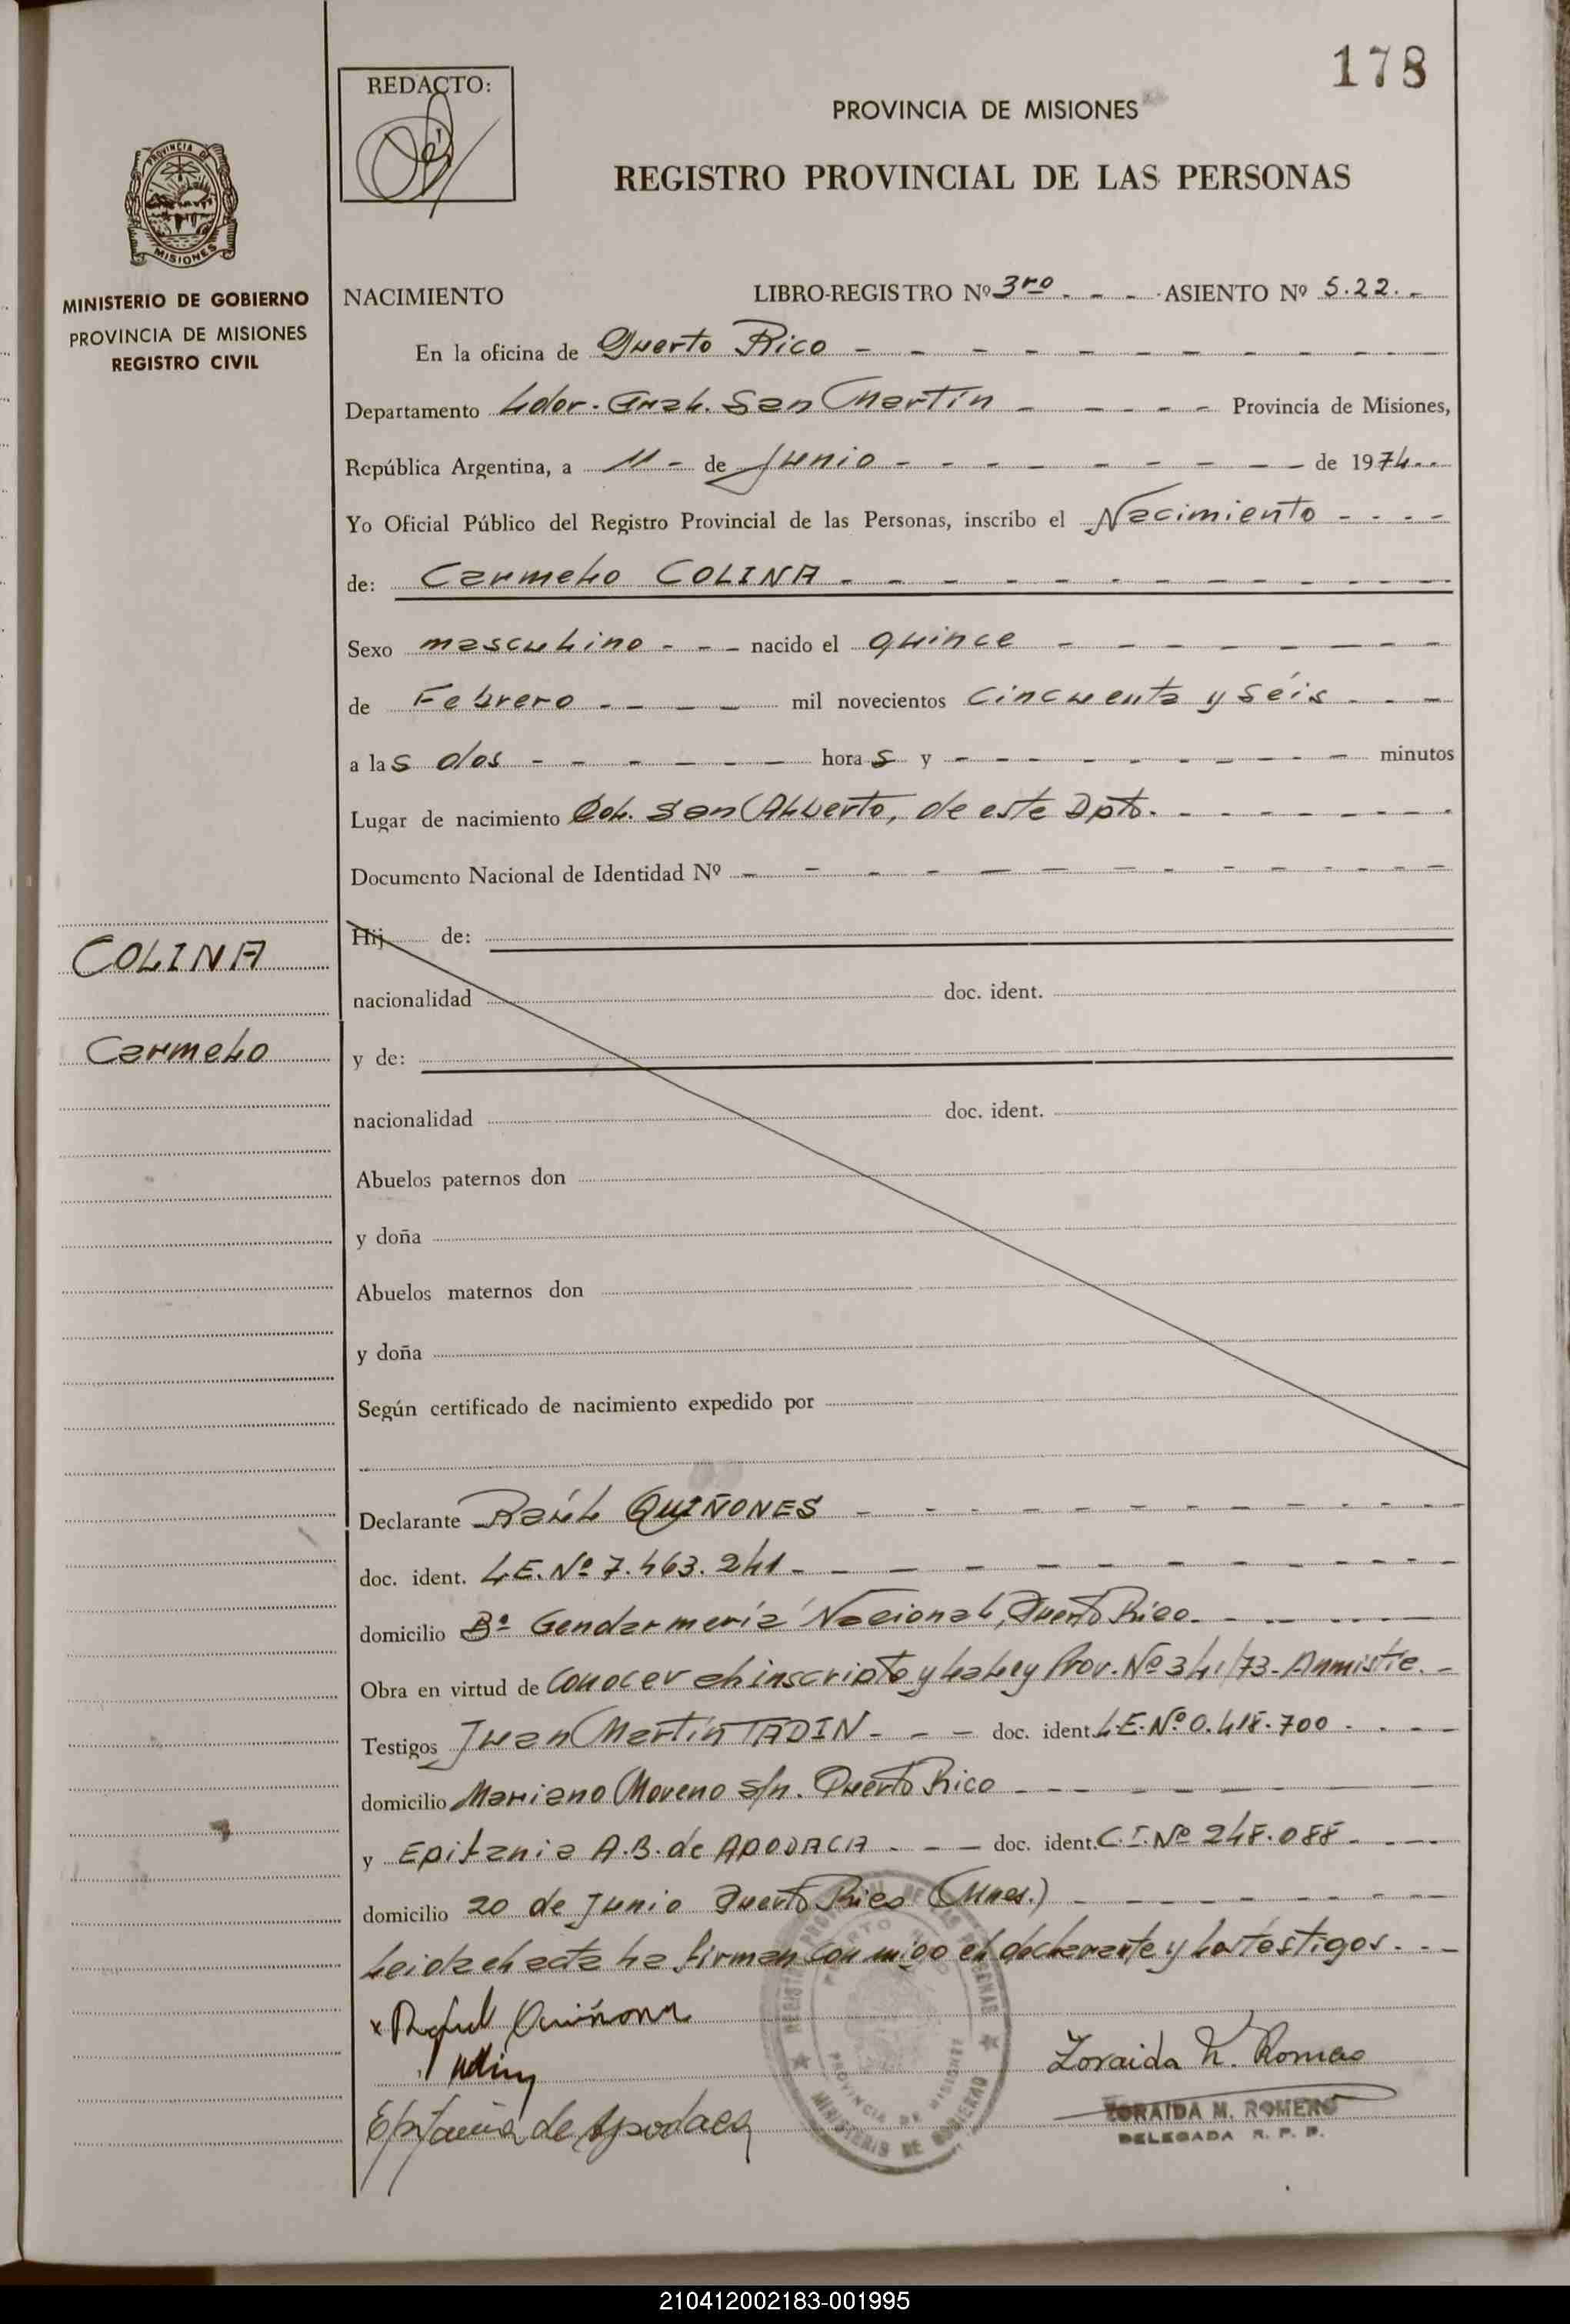 178
REDACTO:
PROVINCIA DE MISIONES
REGISTRO PROVINCIAL DE LAS PERSONAS
PROVINCIA DE
MISIONES
MINISTERIO DE GOBIERNO
PROVINCIA DE MISIONES
REGISTRO CIVIL
NACIMIENTO LIBRO-REGISTRO Nº 3ro - - - ASIENTO Nº 522.-
En la oficina de Puerto Rico - - - - - - - - - -
Departamento Ldor. Gral. San Martín - - - - - Provincia de Misiones,
República Argentina, a 11 - de Junio - - - - - - - - de 1974..
Yo Oficial Público del Registro Provincial de las Personas, inscribo el Nacimiento - - - -
de: Carmelo COLINA - - - - - - - - - -
Sexo masculino - - - nacido el quince - - - - - - - -
de Febrero - - - - - mil novecientos cincuenta y séis - - -
a las dos - - - - - - horas y - - - - - - - - minutos
Lugar de nacimiento Col. San Alberto, de este Dpto. - - - - - - -
Documento Nacional de Identidad Nº - - - - - - - - - - - -
Hij de:
COLINA
nacionalidad doc. ident.
Carmelo
y de:
nacionalidad doc. ident.
Abuelos paternos don
y doña
Abuelos maternos don
y doña
Según certificado de nacimiento expedido por
Declarante Raúl QUIÑONES - - - - - - - - - -
doc. ident. L.E. Nº 7.463.241 - - - - - - - - - -
domicilio Bº Gendarmería Nacional, Puerto Rico. - - - - -
Obra en virtud de conocer el inscripto y la Ley Prov. Nº 341/73 - Anmistíe. -
Testigos Juan Martín TADIN - - - doc. ident. L.E. Nº 0.418.700 - - - -
domicilio Mariano Moreno s/n. Puerto Rico - - - - - - -
y Epifania A.B. de APODACA - - - doc. ident. C.I. Nº 248.088 - - - -
domicilio 20 de Junio Puerto Rico (Mnes.) - - - - - - -
Leida el acta la firman conmigo el declarante y los testigos. - -
x Quiñones
Zoraida M. Romero
Epifania de Apodaca
ZORAIDA M. ROMERO
DELEGADA R. P. P.
REGISTRO PROVINCIAL DE LAS PERSONAS
PUERTO RICO
PROVINCIA DE MISIONES
MINISTERIO DE GOBIERNO
210412002183-001995